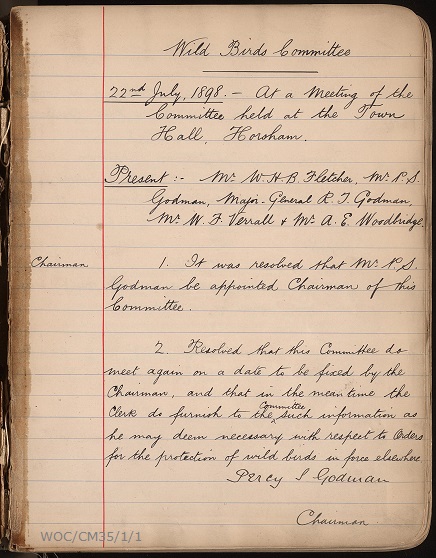 Wild Birds Committee
22nd July, 1898. - At a Meeting of the
Committee held at the Town
Hall, Horsham.
Present :- Mr W. H. B. Fletcher, Mr P. S.
Godman, Major-General R. T. Godman,
Mr W. F. Verrall & Mr A. E. Woodbridge.
Chairman
1. It was resolved that Mr P. S.
Godman be appointed Chairman of this
Committee.
2. Resolved that this Committee do
meet again on a date to be fixed by the
Chairman, and that in the mean time the
Clerk do furnish to the Committee such information as
he may deem necessary with respect to Orders
for the protection of wild birds in force elsewhere
Percy S Godman
Chairman
WOC/CM35/1/1